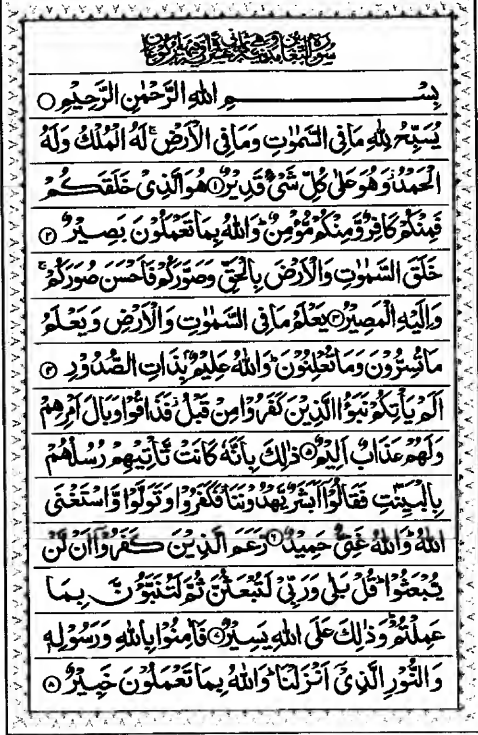 بِسْمِ اللهِ الرَّحْمٰنِ الرَّحِيْمِ ○
يُسَبِّحُ لِلّٰهِ مَا فِى السَّمٰوٰتِ وَمَا فِى الْاَرْضِ ۚ لَهُ الْمُلْكُ وَلَهُ
الْحَمْدُ ۡ وَهُوَ عَلٰى كُلِّ شَىْءٍ قَدِيْرٌ ۝۱ هُوَ الَّذِىْ خَلَقَكُمْ
فَمِنْكُمْ كَافِرٌ وَّمِنْكُمْ مُّؤْمِنٌ ؕ وَاللهُ بِمَا تَعْمَلُوْنَ بَصِيْرٌ ۝۲
خَلَقَ السَّمٰوٰتِ وَالْاَرْضَ بِالْحَقِّ وَصَوَّرَكُمْ فَاَحْسَنَ صُوَرَكُمْ ۚ
وَاِلَيْهِ الْمَصِيْرُ ۝۳ يَعْلَمُ مَا فِى السَّمٰوٰتِ وَالْاَرْضِ وَيَعْلَمُ
مَا تُسِرُّوْنَ وَمَا تُعْلِنُوْنَ ؕ وَاللهُ عَلِيْمٌۢ بِذَاتِ الصُّدُوْرِ ۝۴
اَلَمْ يَاْتِكُمْ نَبَؤُا الَّذِيْنَ كَفَرُوْا مِنْ قَبْلُ ۡ فَذَاقُوْا وَبَالَ اَمْرِهِمْ
وَلَهُمْ عَذَابٌ اَلِيْمٌ ۝۵ ذٰلِكَ بِاَنَّهٗ كَانَتْ تَّاْتِيْهِمْ رُسُلُهُمْ
بِالْبَيِّنٰتِ فَقَالُوْۤا اَبَشَرٌ يَّهْدُوْنَنَا ۡ فَكَفَرُوْا وَتَوَلَّوْا وَّاسْتَغْنَى
اللهُ ؕ وَاللهُ غَنِىٌّ حَمِيْدٌ ۝۶ زَعَمَ الَّذِيْنَ كَفَرُوْۤا اَنْ لَّنْ
يُّبْعَثُوْا ؕ قُلْ بَلٰى وَرَبِّىْ لَتُبْعَثُنَّ ثُمَّ لَتُنَبَّؤُنَّ بِمَا
عَمِلْتُمْ ؕ وَذٰلِكَ عَلَى اللهِ يَسِيْرٌ ۝۷ فَاٰمِنُوْا بِاللهِ وَرَسُوْلِهٖ
وَالنُّوْرِ الَّذِىْۤ اَنْزَلْنَا ؕ وَاللهُ بِمَا تَعْمَلُوْنَ خَبِيْرٌ ۝۸